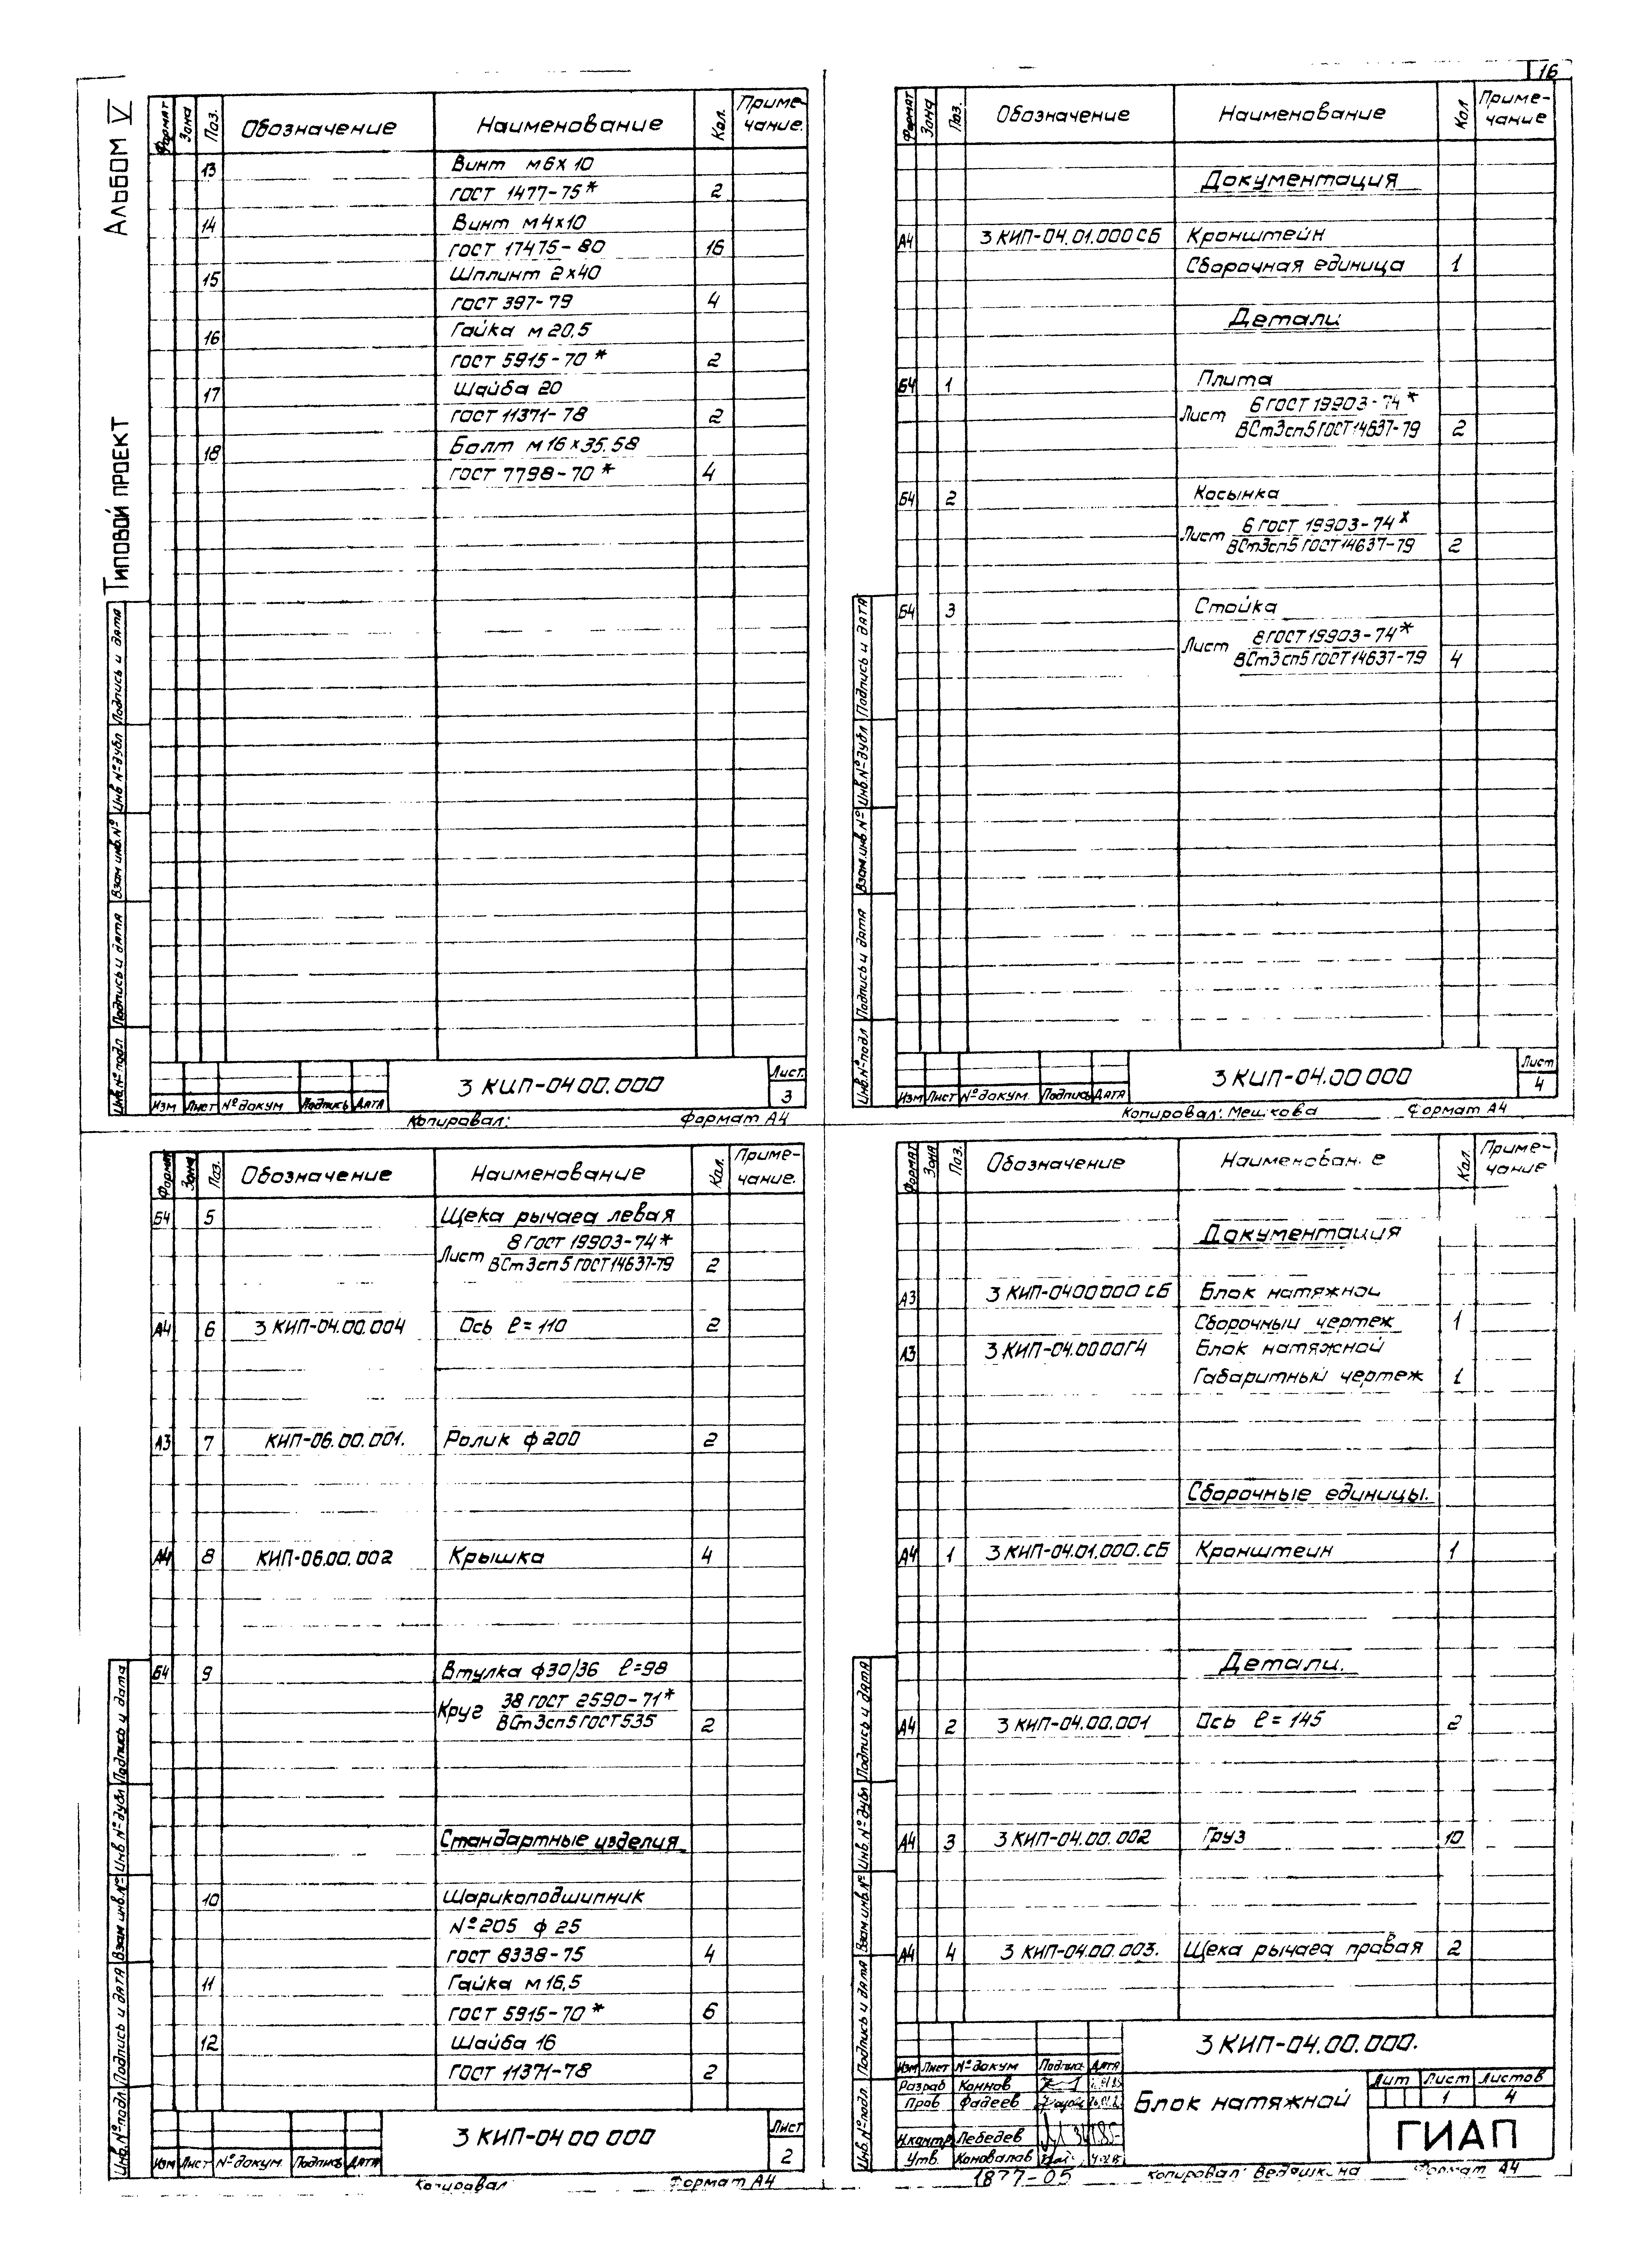 16
Альбом V
Типовой проект
Формат Зона Поз. Обозначение Наименование Кол. Приме-
чание.
13 Винт м6х10
ГОСТ 1477-75* 2
14 Винт м4х10
ГОСТ 17475-80 16
15 Шплинт 2х40
ГОСТ 397-79 4
16 Гайка м20,5
ГОСТ 5915-70* 2
17 Шайба 20
ГОСТ 11371-78 2
18 Болт м16х35.58
ГОСТ 7798-70* 4
Инв.№подл Подпись и дата Взам инв.№ Инв №дубл Подпись и дата
Изм Лист №докум Подпись Дата
3 КИП-04 00.000
Лист.
3
Копировал: Формат А4
Формат Зона Поз. Обозначение Наименование Кол Приме-
чание
Документация
А4 3 КИП-04.01.000СБ Кронштейн
Сборочная единица 1
Детали
Б4 1 Плита
Лист 6 ГОСТ 19903-74*
ВСт3сп5 ГОСТ14637-79 2
Б4 2 Косынка
Лист 6 ГОСТ 19903-74х
ВСт3сп5 ГОСТ14637-79 2
Б4 3 Стойка
Лист 8 ГОСТ 19903-74*
ВСт3сп5 ГОСТ14637-79 4
Инв.№подл Подпись и дата Взам.инв.№ Инв.№дубл Подпись и дата
Изм Лист №докум. Подпись Дата
3 КИП-04.00 000
Лист
4
Копировал: Мешкова Формат А4
Формат Зона Поз. Обозначение Наименование Кол. Приме-
чание.
Б4 5 Щека рычага левая
Лист 8 ГОСТ 19903-74*
ВСт3сп5 ГОСТ14637-79 2
А4 6 3 КИП-04.00.004 Ось ℓ=110 2
А3 7 КИП-06.00.001. Ролик ф200 2
А4 8 КИП-06.00.002 Крышка 4
Б4 9 Втулка ф30/36 ℓ=98
Круг 38 ГОСТ 2590-71*
ВСт3сп5 ГОСТ535 2
Стандартные изделия
10 Шарикоподшипник
№205 ф25
ГОСТ 8338-75 4
11 Гайка м16,5
ГОСТ 5915-70* 6
12 Шайба 16
ГОСТ 11371-78 2
Инв.№подл. Подпись и дата Взам инв.№ Инв №дубл Подпись и дата
Изм Лист №докум. Подпись Дата
3 КИП-04 00 000
Лист
2
Копировал Формат А4
Формат Зона Поз. Обозначение Наименован. е Кол. Приме-
чание
Документация
А3 3 КИП-0400000 СБ Блок натяжной
Сборочный чертеж 1
А3 3 КИП-04.0000Г4 Блок натяжной
Габаритный чертеж 1
Сборочные единицы.
А4 1 3 КИП-04.01.000.СБ Кронштейн 1
Детали.
А4 2 3 КИП-04.00.001 Ось ℓ=145 2
А4 3 3 КИП-04.00.002 Груз 10
А4 4 3 КИП-04.00.003. Щека рычага правая 2
Инв.№подл. Подпись и дата Взам.инв.№ Инв.№дубл Подпись и дата
3 КИП-04.00.000.
Изм Лист №докум Подпись Дата
Разраб Коннов
Пров Фадеев
Н.контр Лебедев
Утв. Коновалов
Блок натяжной
Лит Лист Листов
1 4
ГИАП
1877-05 Копировал: Формат А4